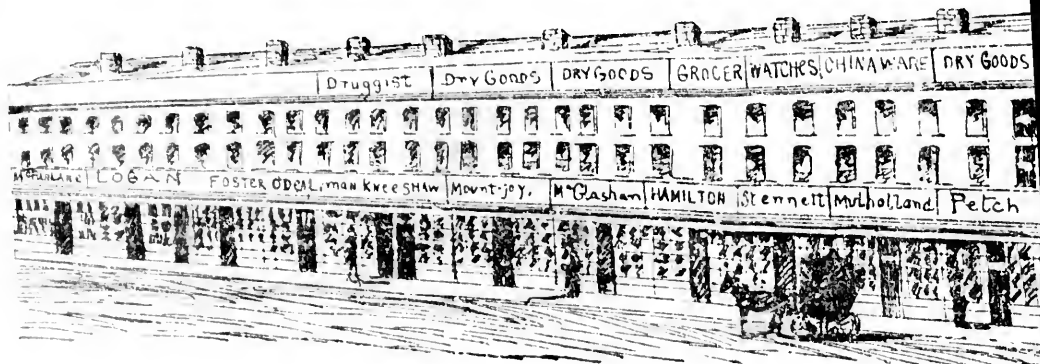 Druggist DRY GOODS DRY GOODS GROCER WATCHES CHINAWARE DRY GOODS
McFARLANE LOGAN FOSTER O'DEAL, man KneeSHAW Mount-joy, McGlashan HAMILTON Stennett Mulholland Petch